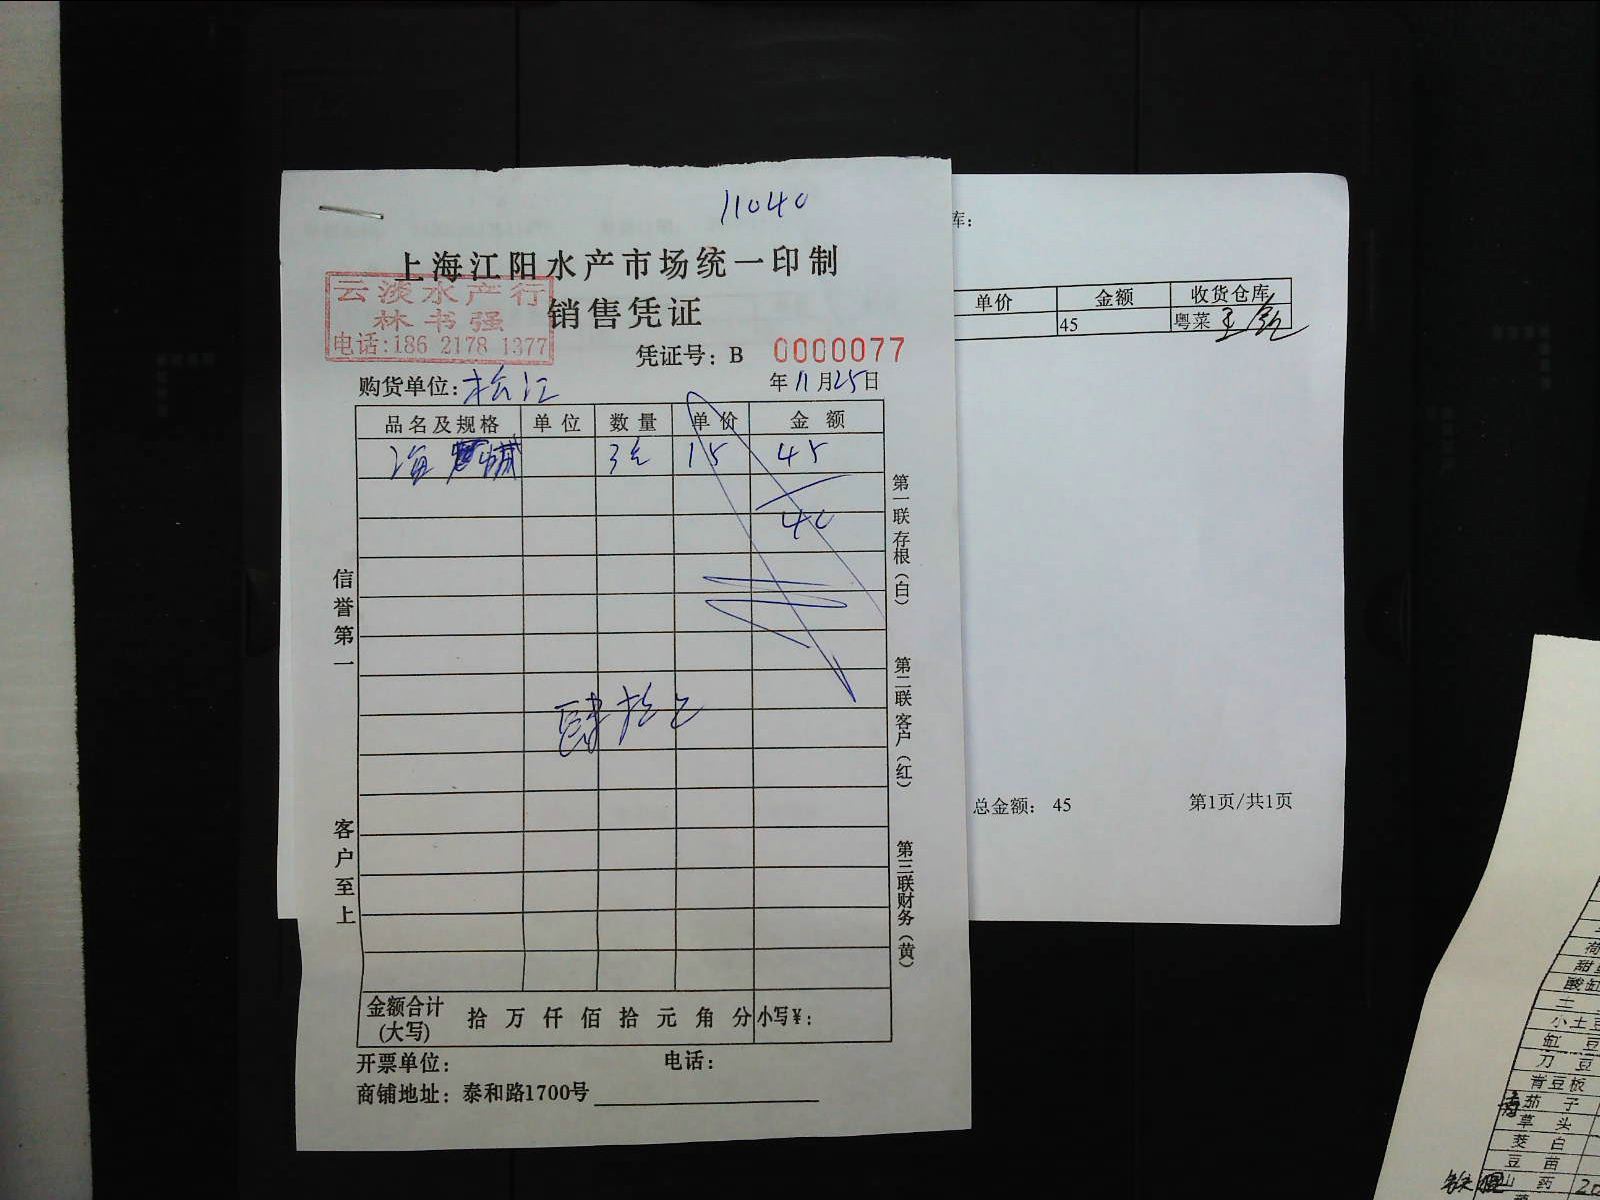 11040
上海江阳水产市场统一印制
云淡水产行
林书强
电话:186 2178 1377
销售凭证
凭证号: B 0000077
购货单位: 松江 年 11 月 25 日
品名及规格 单位 数量 单价 金额
海 15 45
40
肆拾
信誉第一
客户至上
第一联 存根(白)
第二联 客户(红)
第三联 财务(黄)
金额合计(大写) 拾 万 仟 佰 拾 元 角 分 小写¥:
开票单位: 电话:
商铺地址: 泰和路1700号
库:
单价 金额 收货仓库
45 粤菜
总金额: 45 第1页/共1页
甜
酸缸
土
小土豆
缸 豆
刀 豆
青豆板
茄 子
草 头
茭 白
豆 苗
山 药 20